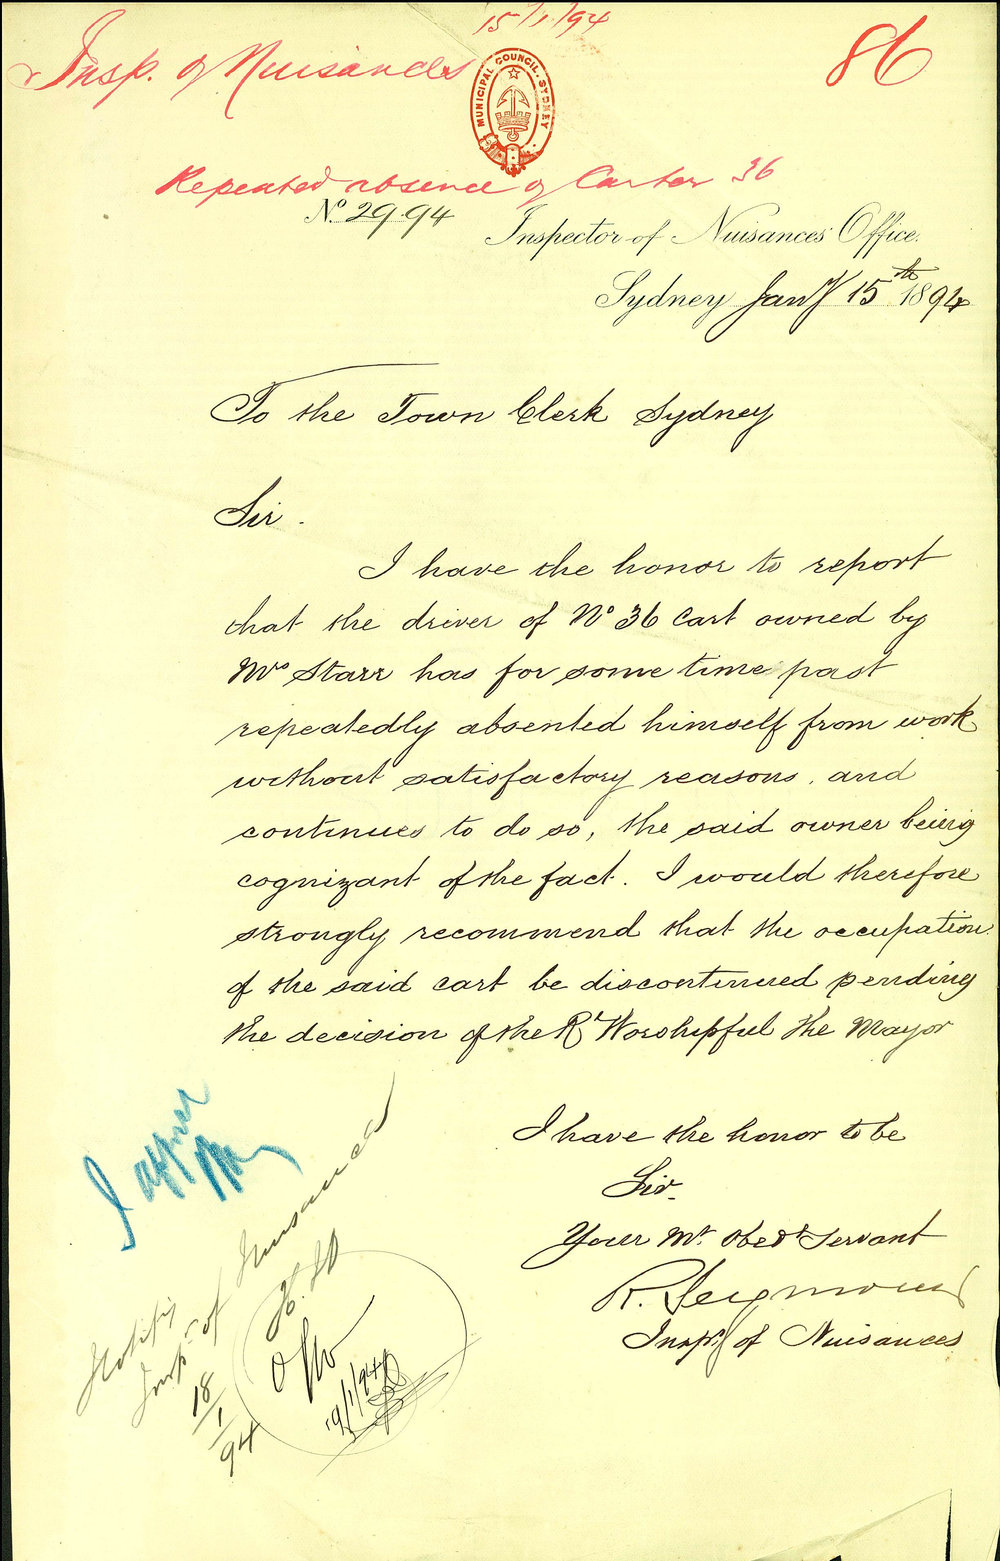 15/1/94
Insp. of Nuisances
86
MUNICIPAL COUNCIL. SYDNEY
Repeated absence of Carter 36
No. 29.94
Inspector of Nuisances Office.
Sydney Jany 15th 1894
To the Town Clerk Sydney
Sir.
I have the honor to report
that the driver of No 36 Cart owned by
Mrs Starr has for some time past
repeatedly absented himself from work
without satisfactory reasons, and
continues to do so, the said owner being
cognizant of the fact. I would therefore
strongly recommend that the occupation
of the said cart be discontinued pending
the decision of the Rt Worshipful the Mayor
I have the honor to be
Sir.
Your Mt. Obedt Servant
R. Seymour
Inspr. of Nuisances
I approve
Notify
Inspr of Nuisances
18/1/94
19/1/94